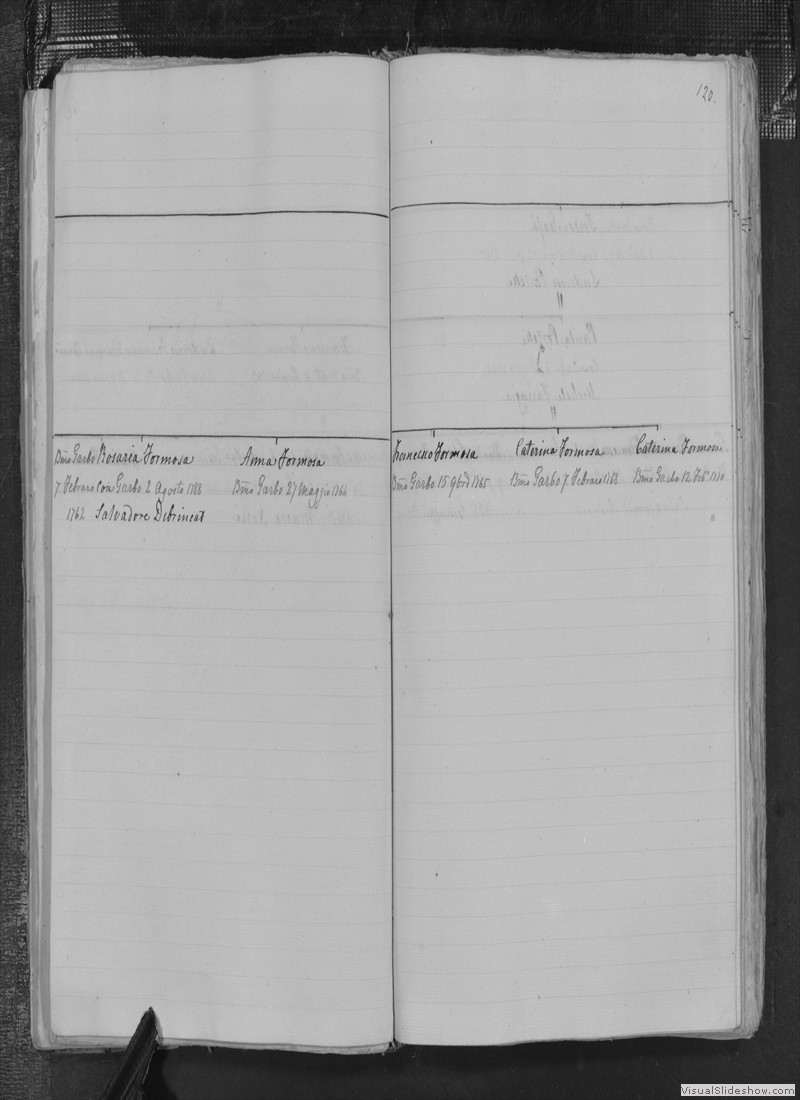 120.
Bmo Garbo Rosaria Formosa
7 Febraro Con Garbo 2 Agosto 1788
1762 Salvadore Debrincat
Anna Formosa
Bmo Garbo 27 Maggio 1764
Francesco Formosa
Bmo Garbo 15 9bre 1765
Caterina Formosa
Bmo Garbo 7 Febraro 1768
Caterina Formosa
Bmo Garbo 12 Feb. 1770
VisualSlideshow.com